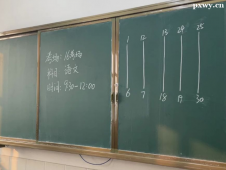 pxwy.cn
科目: 语文
时间: 9:30-12:00
1 12 13 24 25
6 7 18 19 30